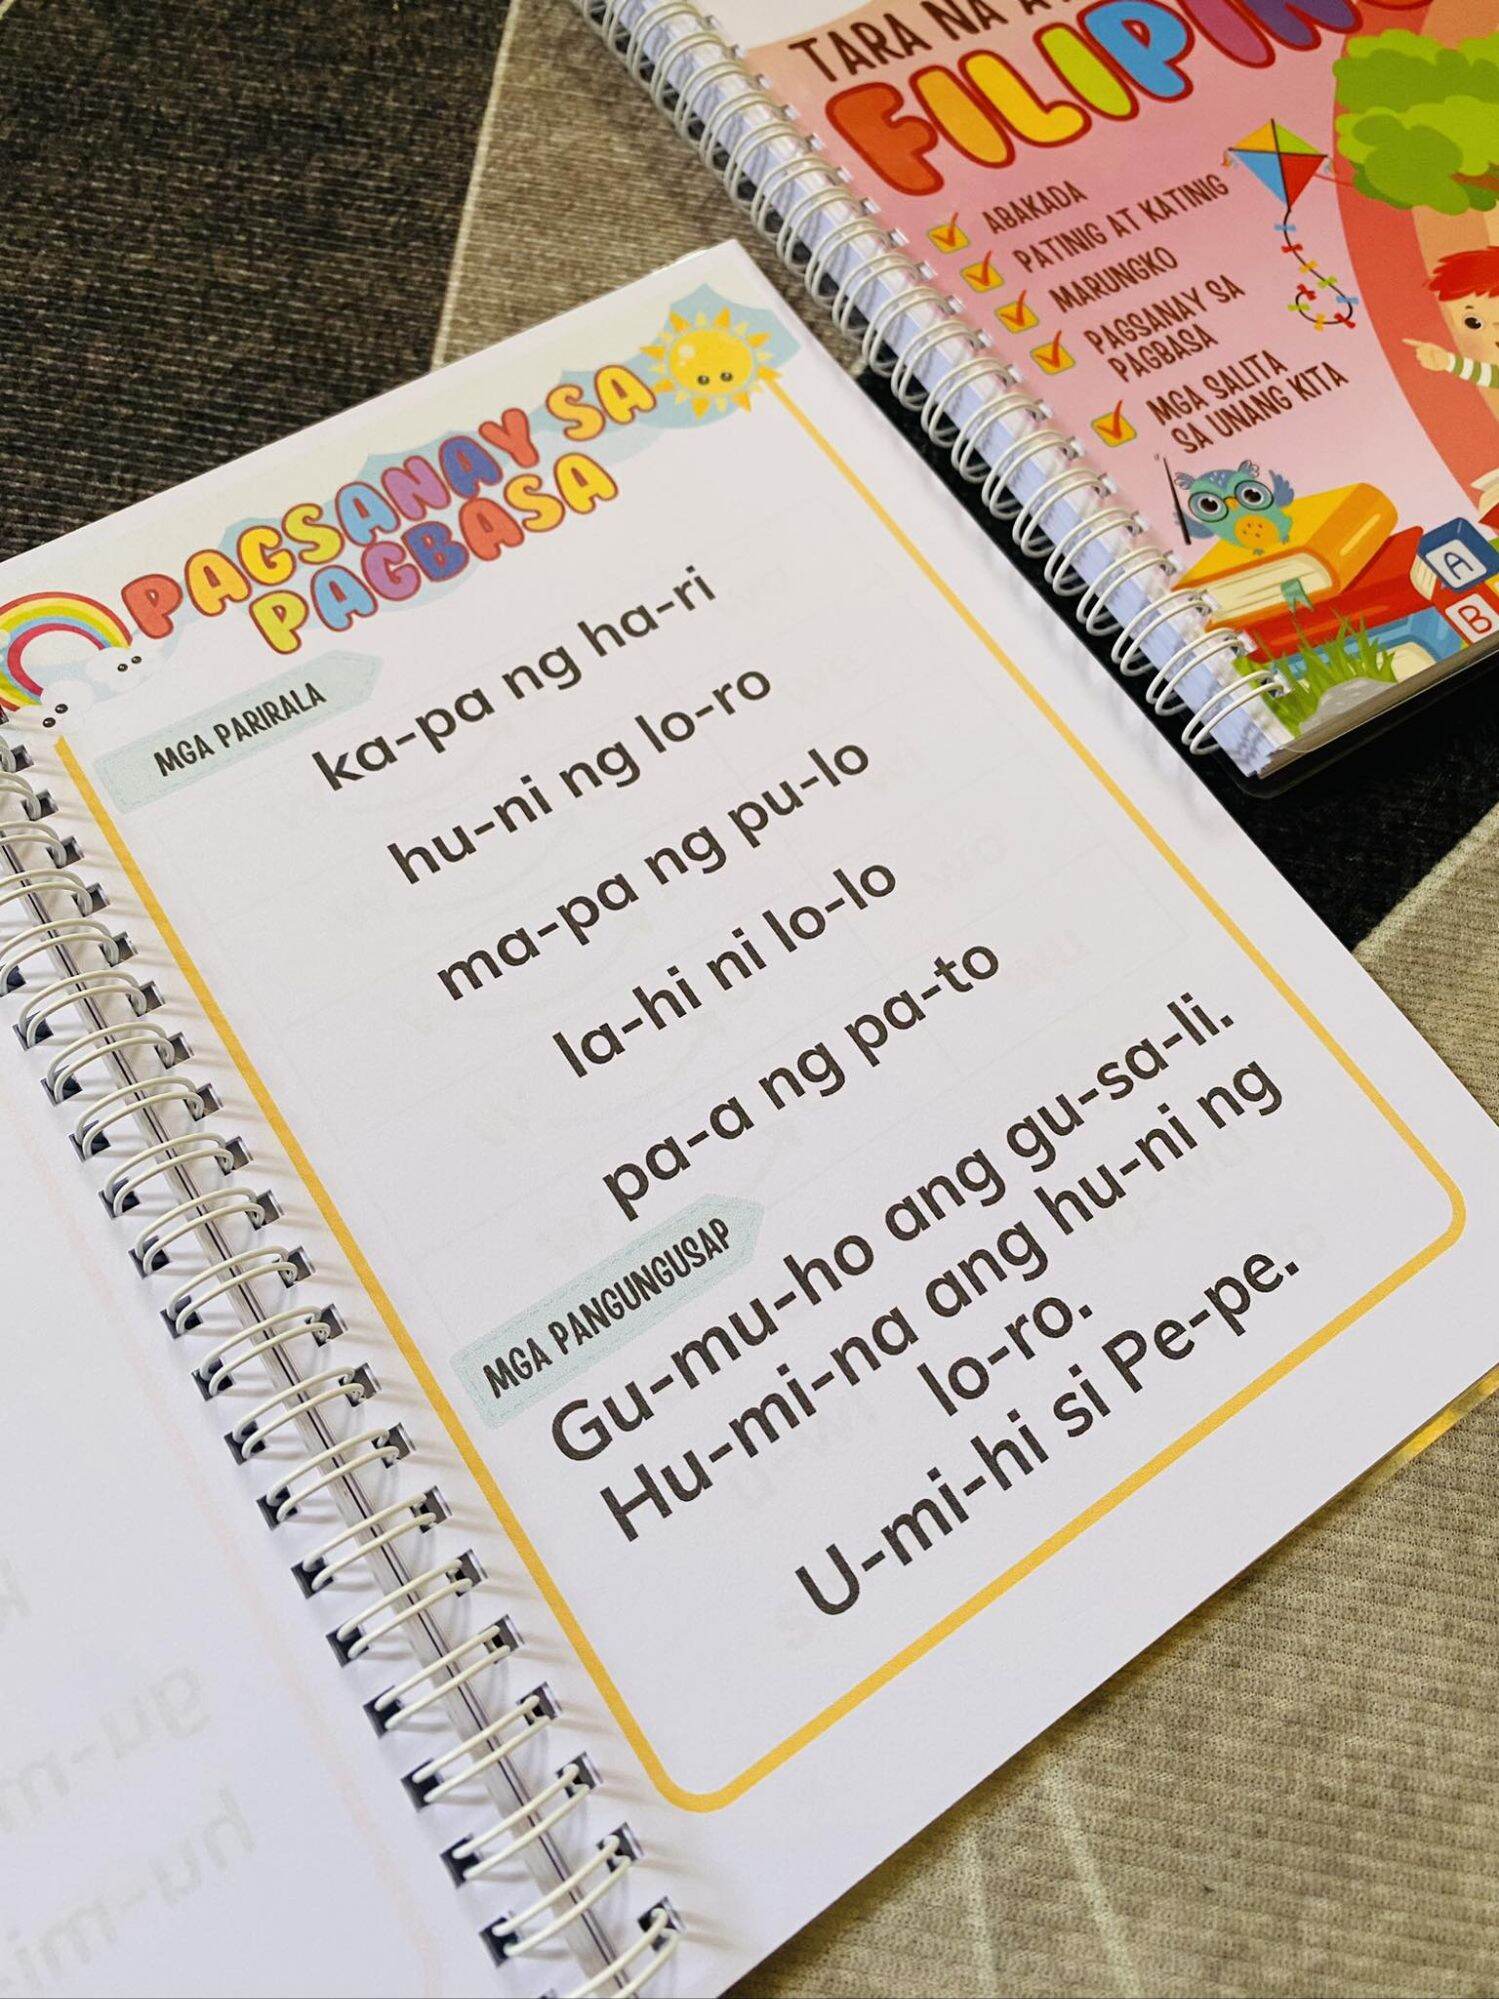 PAGSANAY SA
PAGBASA
MGA PARIRALA
ka-pa ng ha-ri
hu-ni ng lo-ro
ma-pa ng pu-lo
la-hi ni lo-lo
pa-a ng pa-to
MGA PANGUNGUSAP
Gu-mu-ho ang gu-sa-li.
Hu-mi-na ang hu-ni ng
lo-ro.
U-mi-hi si Pe-pe.
TARA NA
ABAKADA
PATINIG AT KATINIG
MARUNGKO
PAGSANAY SA
PAGBASA
MGA SALITA
SA UNANG KITA
A
B